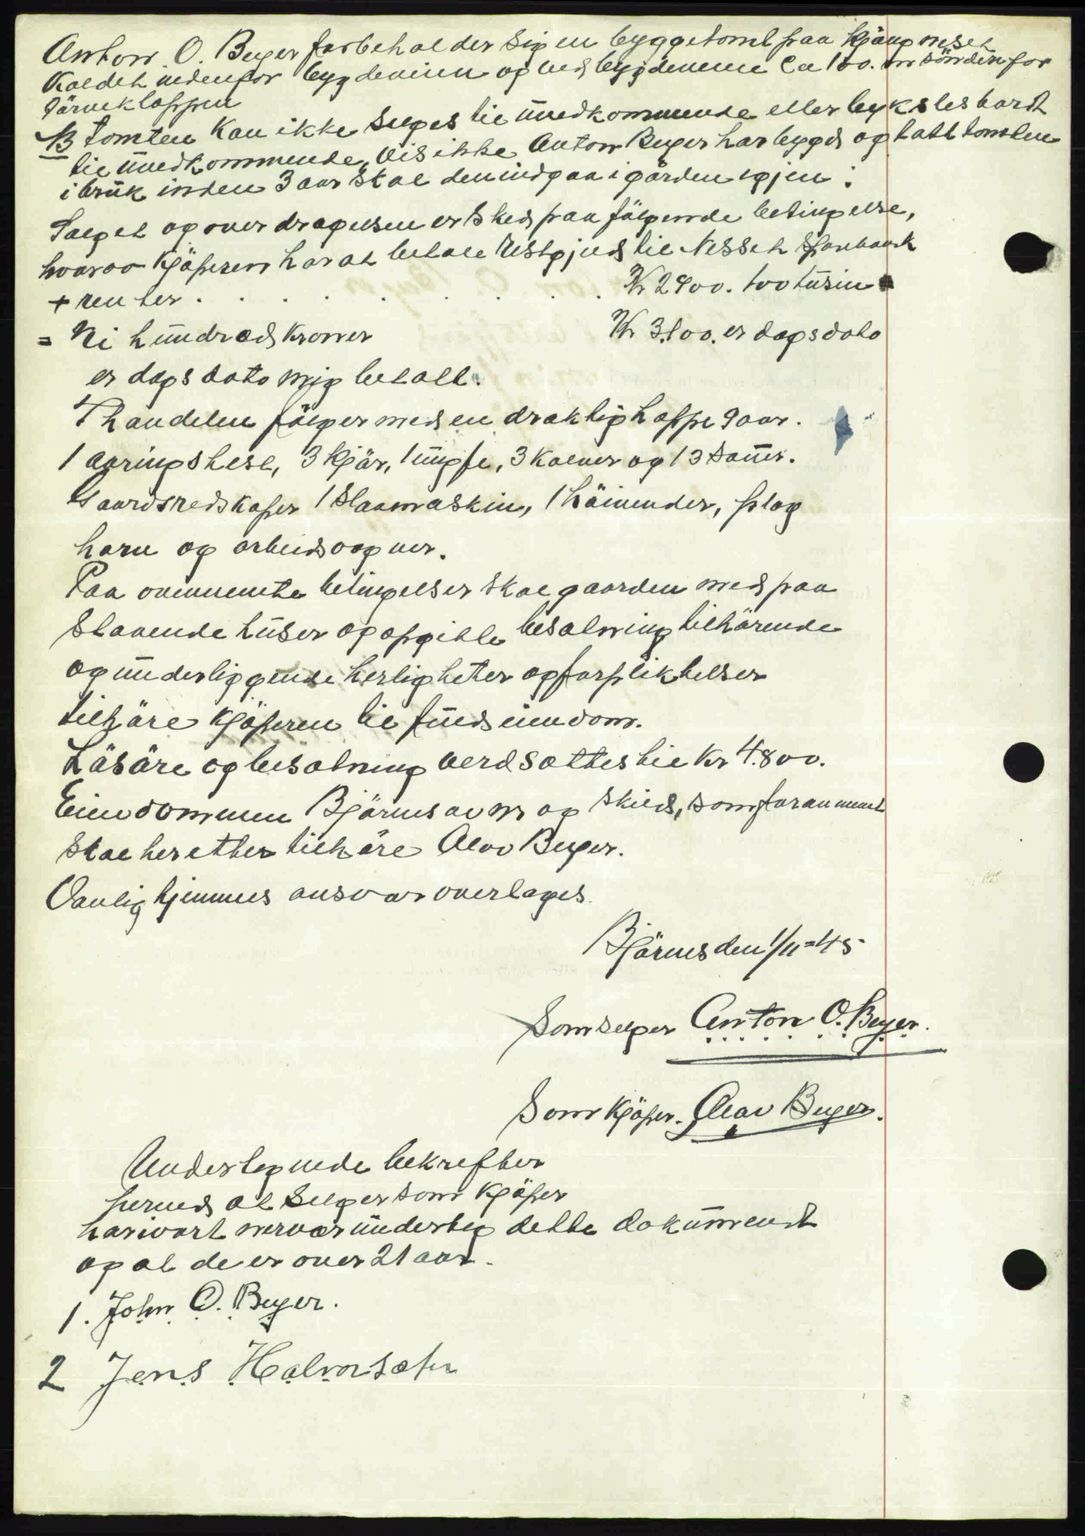 Anton O. Beyer forbeholder sig en byggetomt paa Kjangneset
Kaldet nedenfor bygdeveien og ved bygdeveiene Ca 100. m söndenfor
Tärneklappen
B Tomten Kan ikke selges til uvedkommende eller bykslesbordt
til uvedkommende, vis ikke Anton Beyer har bygd og tatt tomten
i brük inden 3 aar skal den indgaa i gården igjen.
Salget og over dragelsen er Skeds paa fölgende betingelse,
hvorav Kjöperen har at betale Restgjeld til Nesset Sparbank
+ renter . . . . . . . . Kr 2900. tootusin
= Ni hündreds Kroner Kr 3.100. er dags dato
er dags dato mig betalt.
I handelen fölger med en draktig hoppe 9 aar.
1 aarings hest, 3 Kjör, 1 ungfe, 3 Kalver og 13 Sauer.
Gaardsredskaper 1 Slaamaskin, 1 Häivender, plog
harv og arbeidsvogner.
Paa ovennemte betingelser skal gaarden med paa
staaende hüser og opgitte besatning tilhörende
og underliggende herligheter og forpliktelser
tilhöre Kjöperen til fuld eiendom.
Lösöre og besatning verdsattes til Kr 4800.
Eiendommen Bjärnes av m og Skild, som foran nemt
Skal heretter tilhöre Olav Beyer.
Vanlig hjemmels ansvar overtages.
Bjärnes den 1/11-45
Som selger Anton O. Beyer.
Som Kjöper. Olav Beyer.
Undertegnede bekrefter
herved at Selger som Kjöper
har i vort nervær underteg dette dokument
og at de er over 21 aar.
1. John O. Beyer.
2 Jens Halvorsen